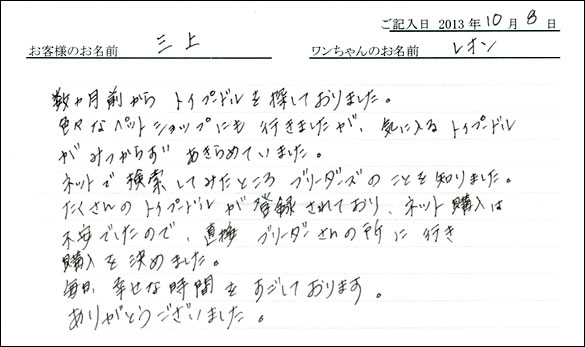 ご記入日 2013年 10月 8日
お客様のお名前 三上 ワンちゃんのお名前 レオン
数ヶ月前から トイプードルを探しておりました。
色々なペットショップにも 行きましたが、気に入る トイプードル
がみつからず あきらめていました。
ネットで検索してみたところ ブリーダーズのことを知りました。
たくさんの トイプードルが登録されており、ネット購入は
不安でしたので、直接 ブリーダーさんの所に行き
購入を決めました。
毎日、幸せな時間をすごしております。
ありがとうございました。